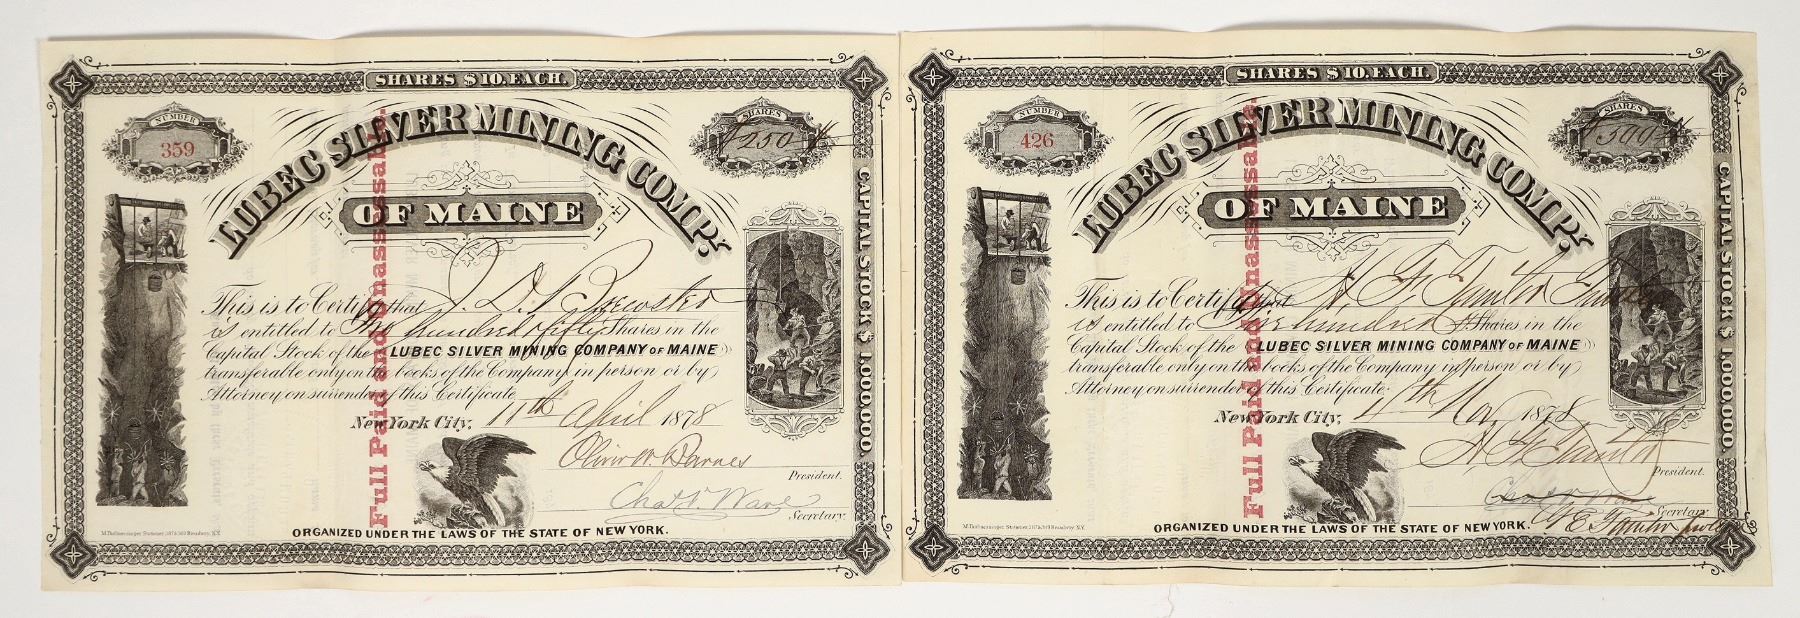 SHARES $10. EACH.
NUMBER
359
SHARES
250
LUBEC SILVER MINING COMPY.
OF MAINE
Full Paid and Unassessable.
CAPITAL STOCK $1,000,000.
This is to Certify that J. D. Brewster
is entitled to Two hundred & fifty Shares in the
Capital Stock of the LUBEC SILVER MINING COMPANY OF MAINE
transferable only on the books of the Company, in person or by
Attorney on surrender of this Certificate.
New York City, 11th April 1878
Oliver W. Barnes
President.
Chas. F. Ware
Secretary.
ORGANIZED UNDER THE LAWS OF THE STATE OF NEW YORK.
SHARES $10. EACH.
NUMBER
426
SHARES
500
LUBEC SILVER MINING COMPY.
OF MAINE
Full Paid and Unassessable.
CAPITAL STOCK $1,000,000.
This is to Certify that H. F.
is entitled to Five hundred Shares in the
Capital Stock of the LUBEC SILVER MINING COMPANY OF MAINE
transferable only on the books of the Company, in person or by
Attorney on surrender of this Certificate.
New York City, Nov 1878
President.
Secretary.
ORGANIZED UNDER THE LAWS OF THE STATE OF NEW YORK.